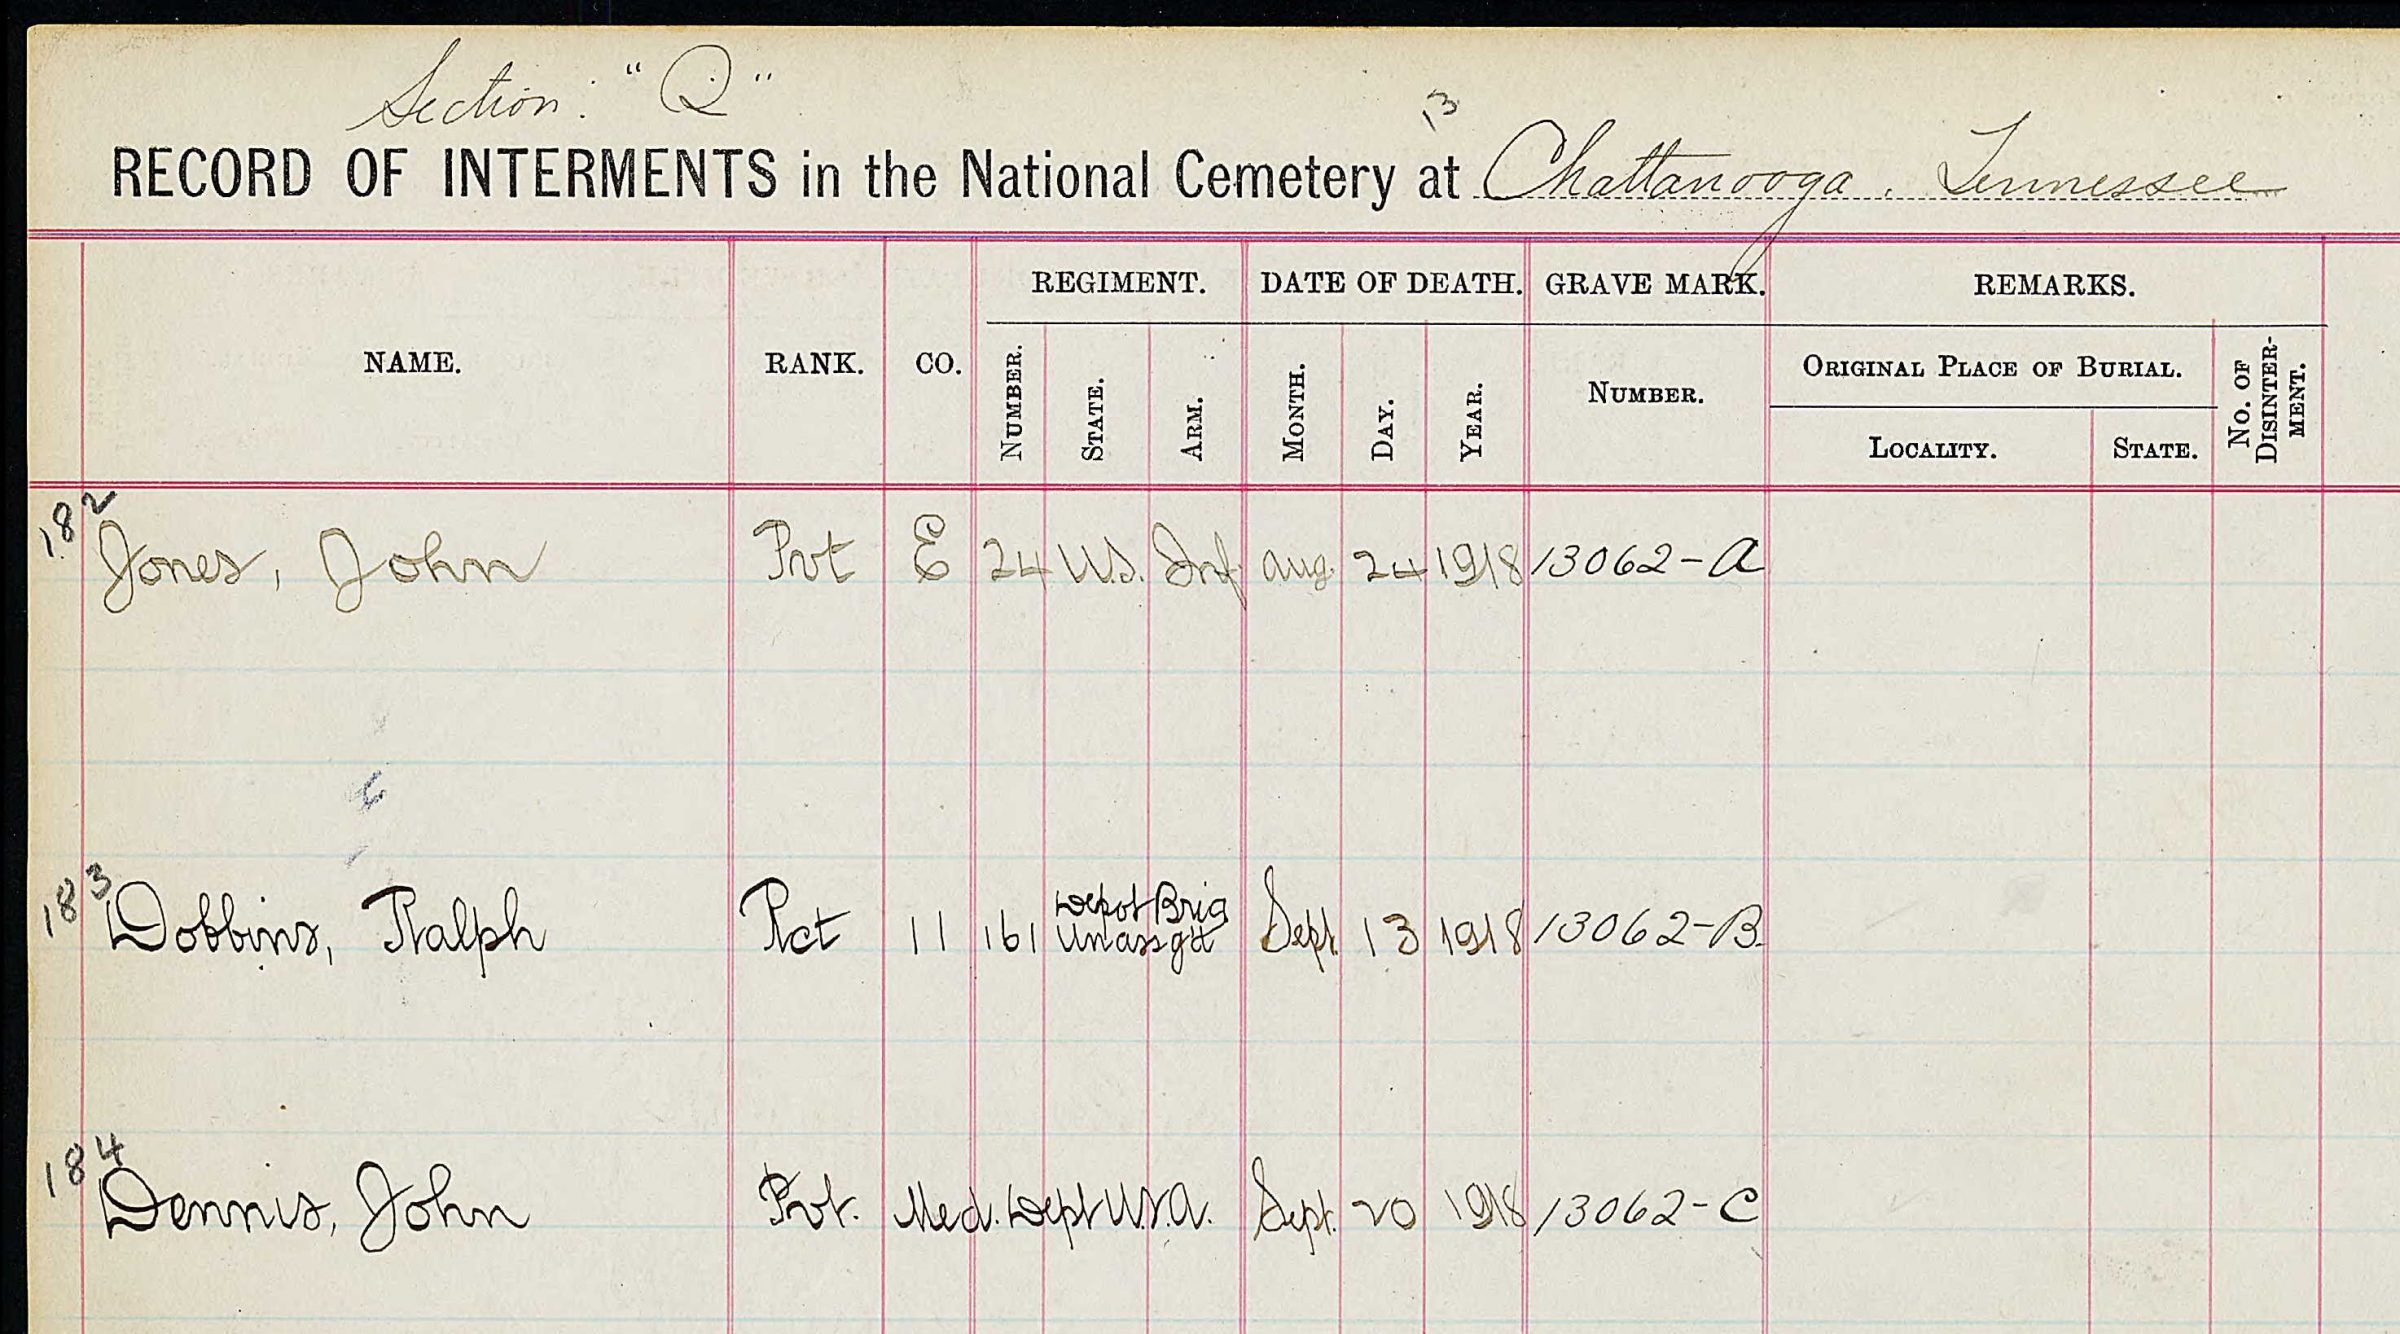 Section: "Q"
13
RECORD OF INTERMENTS in the National Cemetery at Chattanooga, Tennessee
NAME. RANK. CO. REGIMENT. DATE OF DEATH. GRAVE MARK. REMARKS.
NUMBER. STATE. ARM. MONTH. DAY. YEAR. NUMBER. ORIGINAL PLACE OF BURIAL. NO. OF DISINTER-MENT.
LOCALITY. STATE.
182
Jones, John Pvt E 24 U.S. Inf. Aug. 24 1918 13062-A
183
Depot Brig
Dobbins, Ralph Rct 11 161 Unassgd Sept. 13 1918 13062-B.
184
Dennis, John Pvt. Med. Dept U.S.A. Sept. 20 1918 13062-C